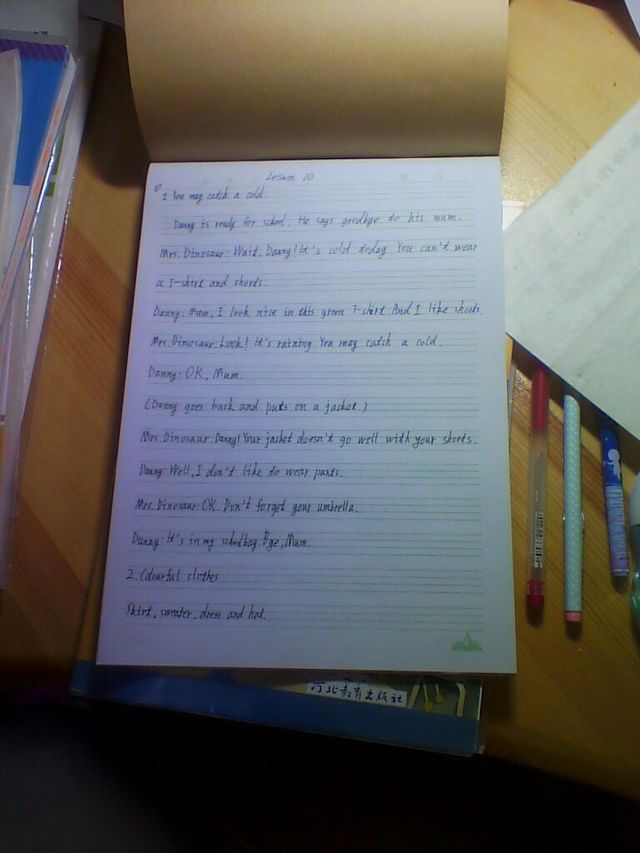 Lesson 10
1. You may catch a cold.
Danny is ready for school. He says goodbye to his mum.
Mrs. Dinosaur: Wait, Danny! It's cold today. You can't wear
a T-shirt and shorts.
Danny: Mum, I look nice in this green T-shirt. And I like shorts.
Mrs. Dinosaur: Look! It's raining. You may catch a cold.
Danny: OK, Mum.
(Danny goes back and puts on a jacket.)
Mrs. Dinosaur: Danny! Your jacket doesn't go well with your shorts.
Danny: Well, I don't like to wear pants.
Mrs. Dinosaur: OK. Don't forget your umbrella.
Danny: It's in my schoolbag. Bye, Mum.
2. Colourful clothes
Shirt, sweater, dress and hat.
河北教育出版社